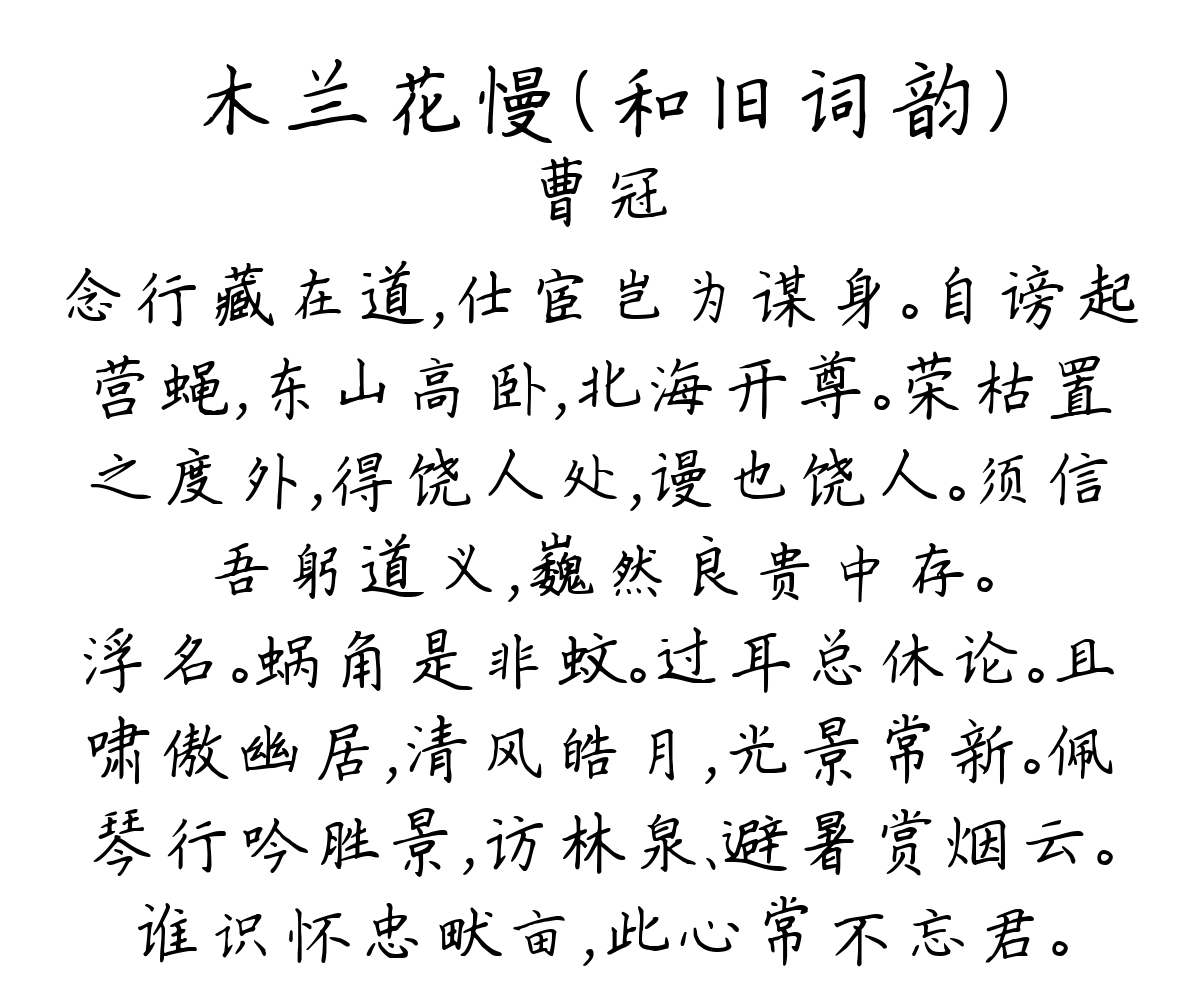 木兰花慢(和旧词韵)
曹冠
念行藏在道,仕宦岂为谋身。自谤起
营蝇,东山高卧,北海开尊。荣枯置
之度外,得饶人处,谩也饶人。须信
吾躬道义,巍然良贵中存。
浮名。蜗角是非蚊。过耳总休论。且
啸傲幽居,清风皓月,光景常新。佩
琴行吟胜景,访林泉、避暑赏烟云。
谁识怀忠畎亩,此心常不忘君。